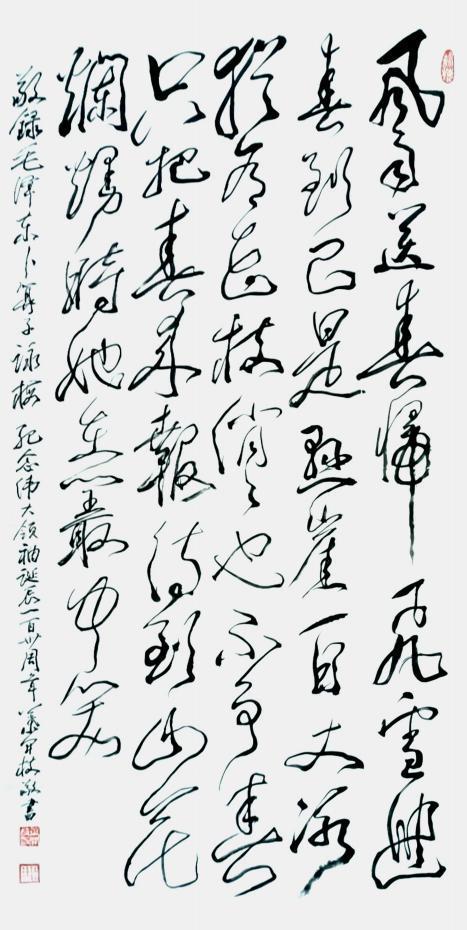 風雨送春歸飛雪迎
春到已是懸崖百丈冰
猶有花枝俏々也不爭春
只把春來報待到山花
爛熳時她在叢中笑
敬録毛澤東卜算子詠梅 紀念偉大領袖誕辰一百卅周年 敬書